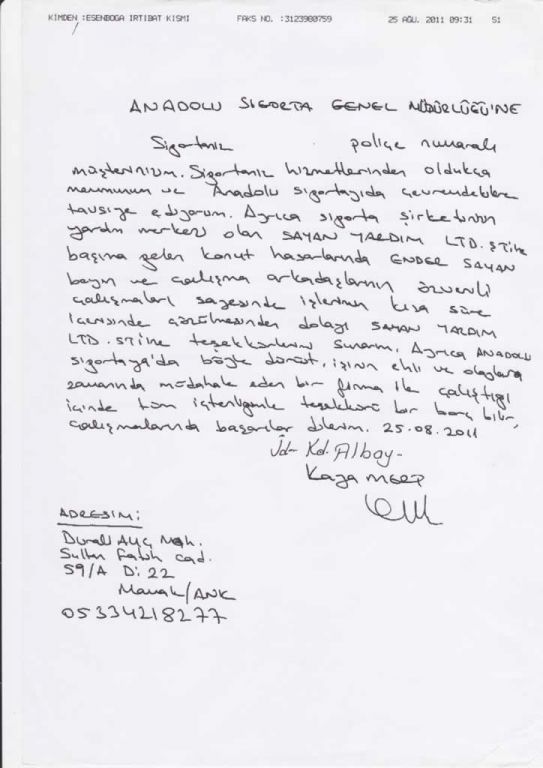 KİMDEN :ESENBOGA IRTIBAT KISMI FAKS NO. :3123980759 25 AĞU. 2011 09:31 S1
ANADOLU SİGORTA GENEL MÜDÜRLÜĞÜ'NE
Sigortanız poliçe numaralı
müşterinizim. Sigortanız hizmetlerinden oldukça
memnunum ve Anadolu sigortayıda çevremdekilere
tavsiye ediyorum. Ayrıca sigorta şirketinin
yardım merkezi olan SAYAN YARDIM LTD. ŞTİne
başıma gelen konut hasarlarında ENDER SAYAN
bayın ve çalışma arkadaşlarının özverili
çalışmaları sayesinde işlerimin kısa süre
içerisinde çözülmesinden dolayı SAYAN YARDIM
LTD. ŞTİne teşekkürlerimi sunarım. Ayrıca ANADOLU
sigortaya'da böyle dürüst, işinin ehli ve olaylara
zamanında müdahale eden bir firma ile çalıştığı
içinde tüm içtenliğimle teşekkürü bir borç bilir,
çalışmalarında başarılar dilerim. 25.08.2011
Jd. Kd. Albay-
Kaya MERT
ADRESİM:
Durali Alıç Mah.
Sultan Fatih cad.
59/A D: 22
Mamak/ANK
05334218277